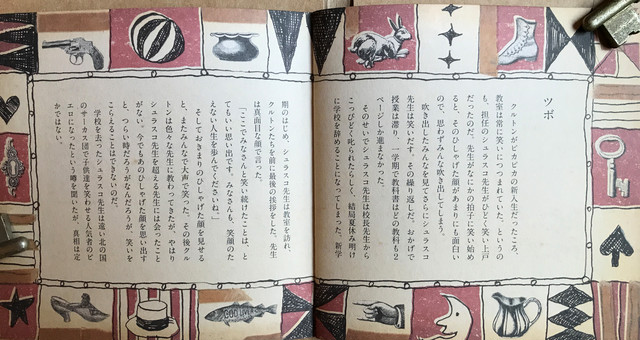 ツボ
クルトンがピカピカの新人生だったころ、
教室は常に笑いにつつまれていた。というの
も、担任のシュラスコ先生がひどく笑い上戸
だったのだ。先生がなにかの拍子に笑い始め
ると、そのひしゃげた顔があまりにも面白い
ので、思わずみんな吹き出してしまう。
吹き出したみんなを見てさらにシュラスコ
先生は笑いだす。その繰り返しだ。おかげで
授業は滞り、一学期で教科書はどの教科も2
ページしか進まなかった。
そのせいでシュラスコ先生は校長先生から
こっぴどく叱られたらしく、結局夏休み明け
に学校を辞めることになってしまった。新学
期のはじめ、シュラスコ先生は教室を訪れ、
クルトンたちを前に最後の挨拶をした。先生
は真面目な顔で言った。
「ここでみなさんと笑い続けたことは、と
てもいい思い出です。みなさんも、笑顔のた
えない人生を歩んでくださいね」
そしておきまりのひしゃげた顔を見せる
と、またみんなで大声で笑った。その後クル
トンは色々な先生に教わってきたが、やはり
シュラスコ先生を超える先生には会ったこと
がない。今でもあのひしゃげた顔を思い出す
と、つらい時だろうがなんだろうが、笑いを
こらえることはできないのだ。
学校を去ったシュラスコ先生は遠い北の国
のサーカス団で子供達を笑わせる人気者のピ
エロになったという噂を聞いたが、真相は定
かではない。
COD LIVER